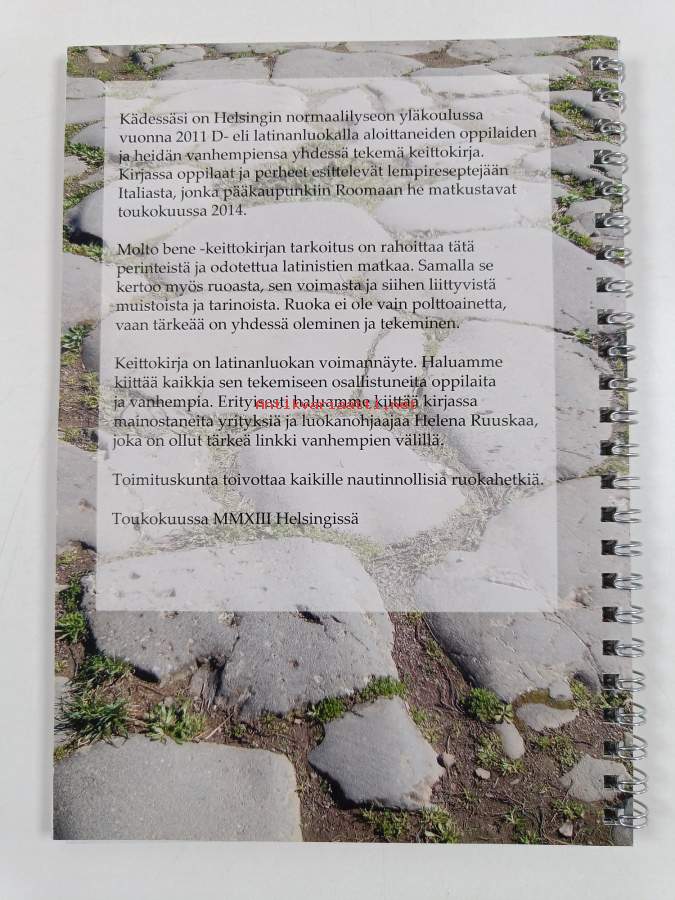 Kädessäsi on Helsingin normaalilyseon yläkoulussa
vuonna 2011 D- eli latinanluokalla aloittaneiden oppilaiden
ja heidän vanhempiensa yhdessä tekemä keittokirja.
Kirjassa oppilaat ja perheet esittelevät lempireseptejään
Italiasta, jonka pääkaupunkiin Roomaan he matkustavat
toukokuussa 2014.
Molto bene -keittokirjan tarkoitus on rahoittaa tätä
perinteistä ja odotettua latinistien matkaa. Samalla se
kertoo myös ruoasta, sen voimasta ja siihen liittyvistä
muistoista ja tarinoista. Ruoka ei ole vain polttoainetta,
vaan tärkeää on yhdessä oleminen ja tekeminen.
Keittokirja on latinanluokan voimannäyte. Haluamme
kiittää kaikkia sen tekemiseen osallistuneita oppilaita
ja vanhempia. Erityisesti haluamme kiittää kirjassa
Antikvariaatti.net
mainostaneita yrityksiä ja luokanohjaajaa Helena Ruuskaa,
joka on ollut tärkeä linkki vanhempien välillä.
Toimituskunta toivottaa kaikille nautinnollisia ruokahetkiä.
Toukokuussa MMXIII Helsingissä